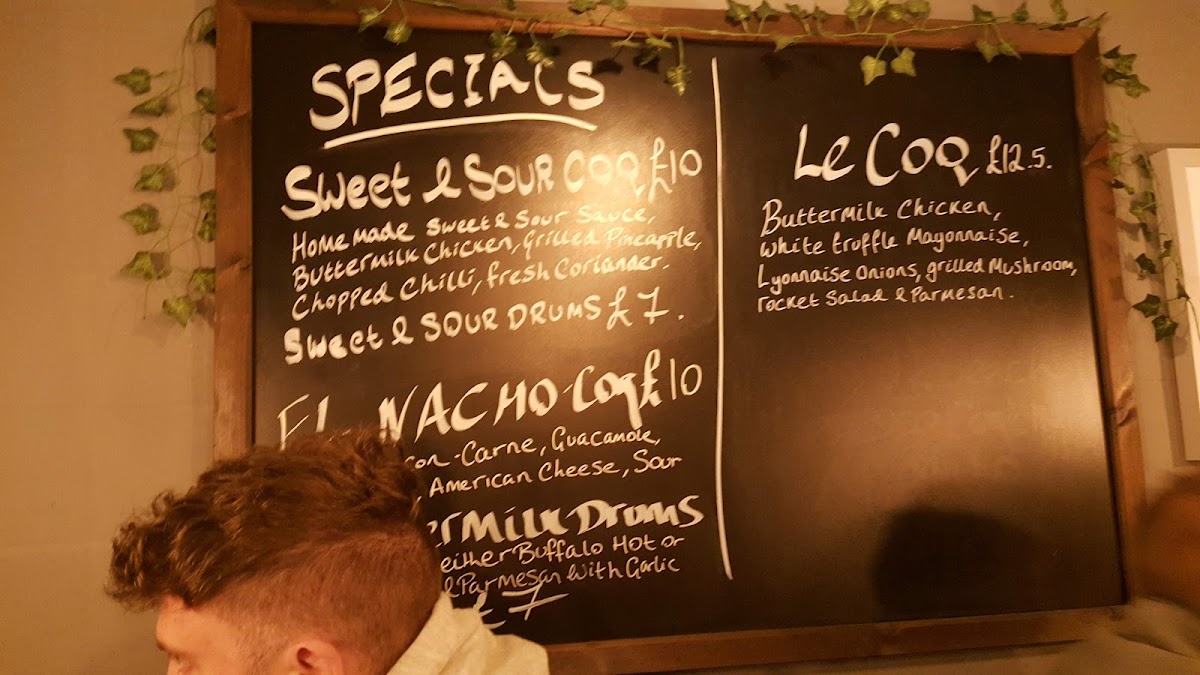 SPECIALS
Sweet & SOUR COQ £10
Home made Sweet & Sour Sauce,
Buttermilk Chicken, Grilled Pineapple,
Chopped Chilli, fresh Coriander.
Sweet & SOUR DRUMS £7.
EL NACHO-Coq £10
Con-Carne, Guacamole,
, American Cheese, Sour
Drums
either Buffalo Hot or
Parmesan with Garlic
£7
Le Coq £12.5.
Buttermilk Chicken,
white truffle Mayonnaise,
Lyonnaise Onions, grilled Mushroom,
rocket Salad & Parmesan.